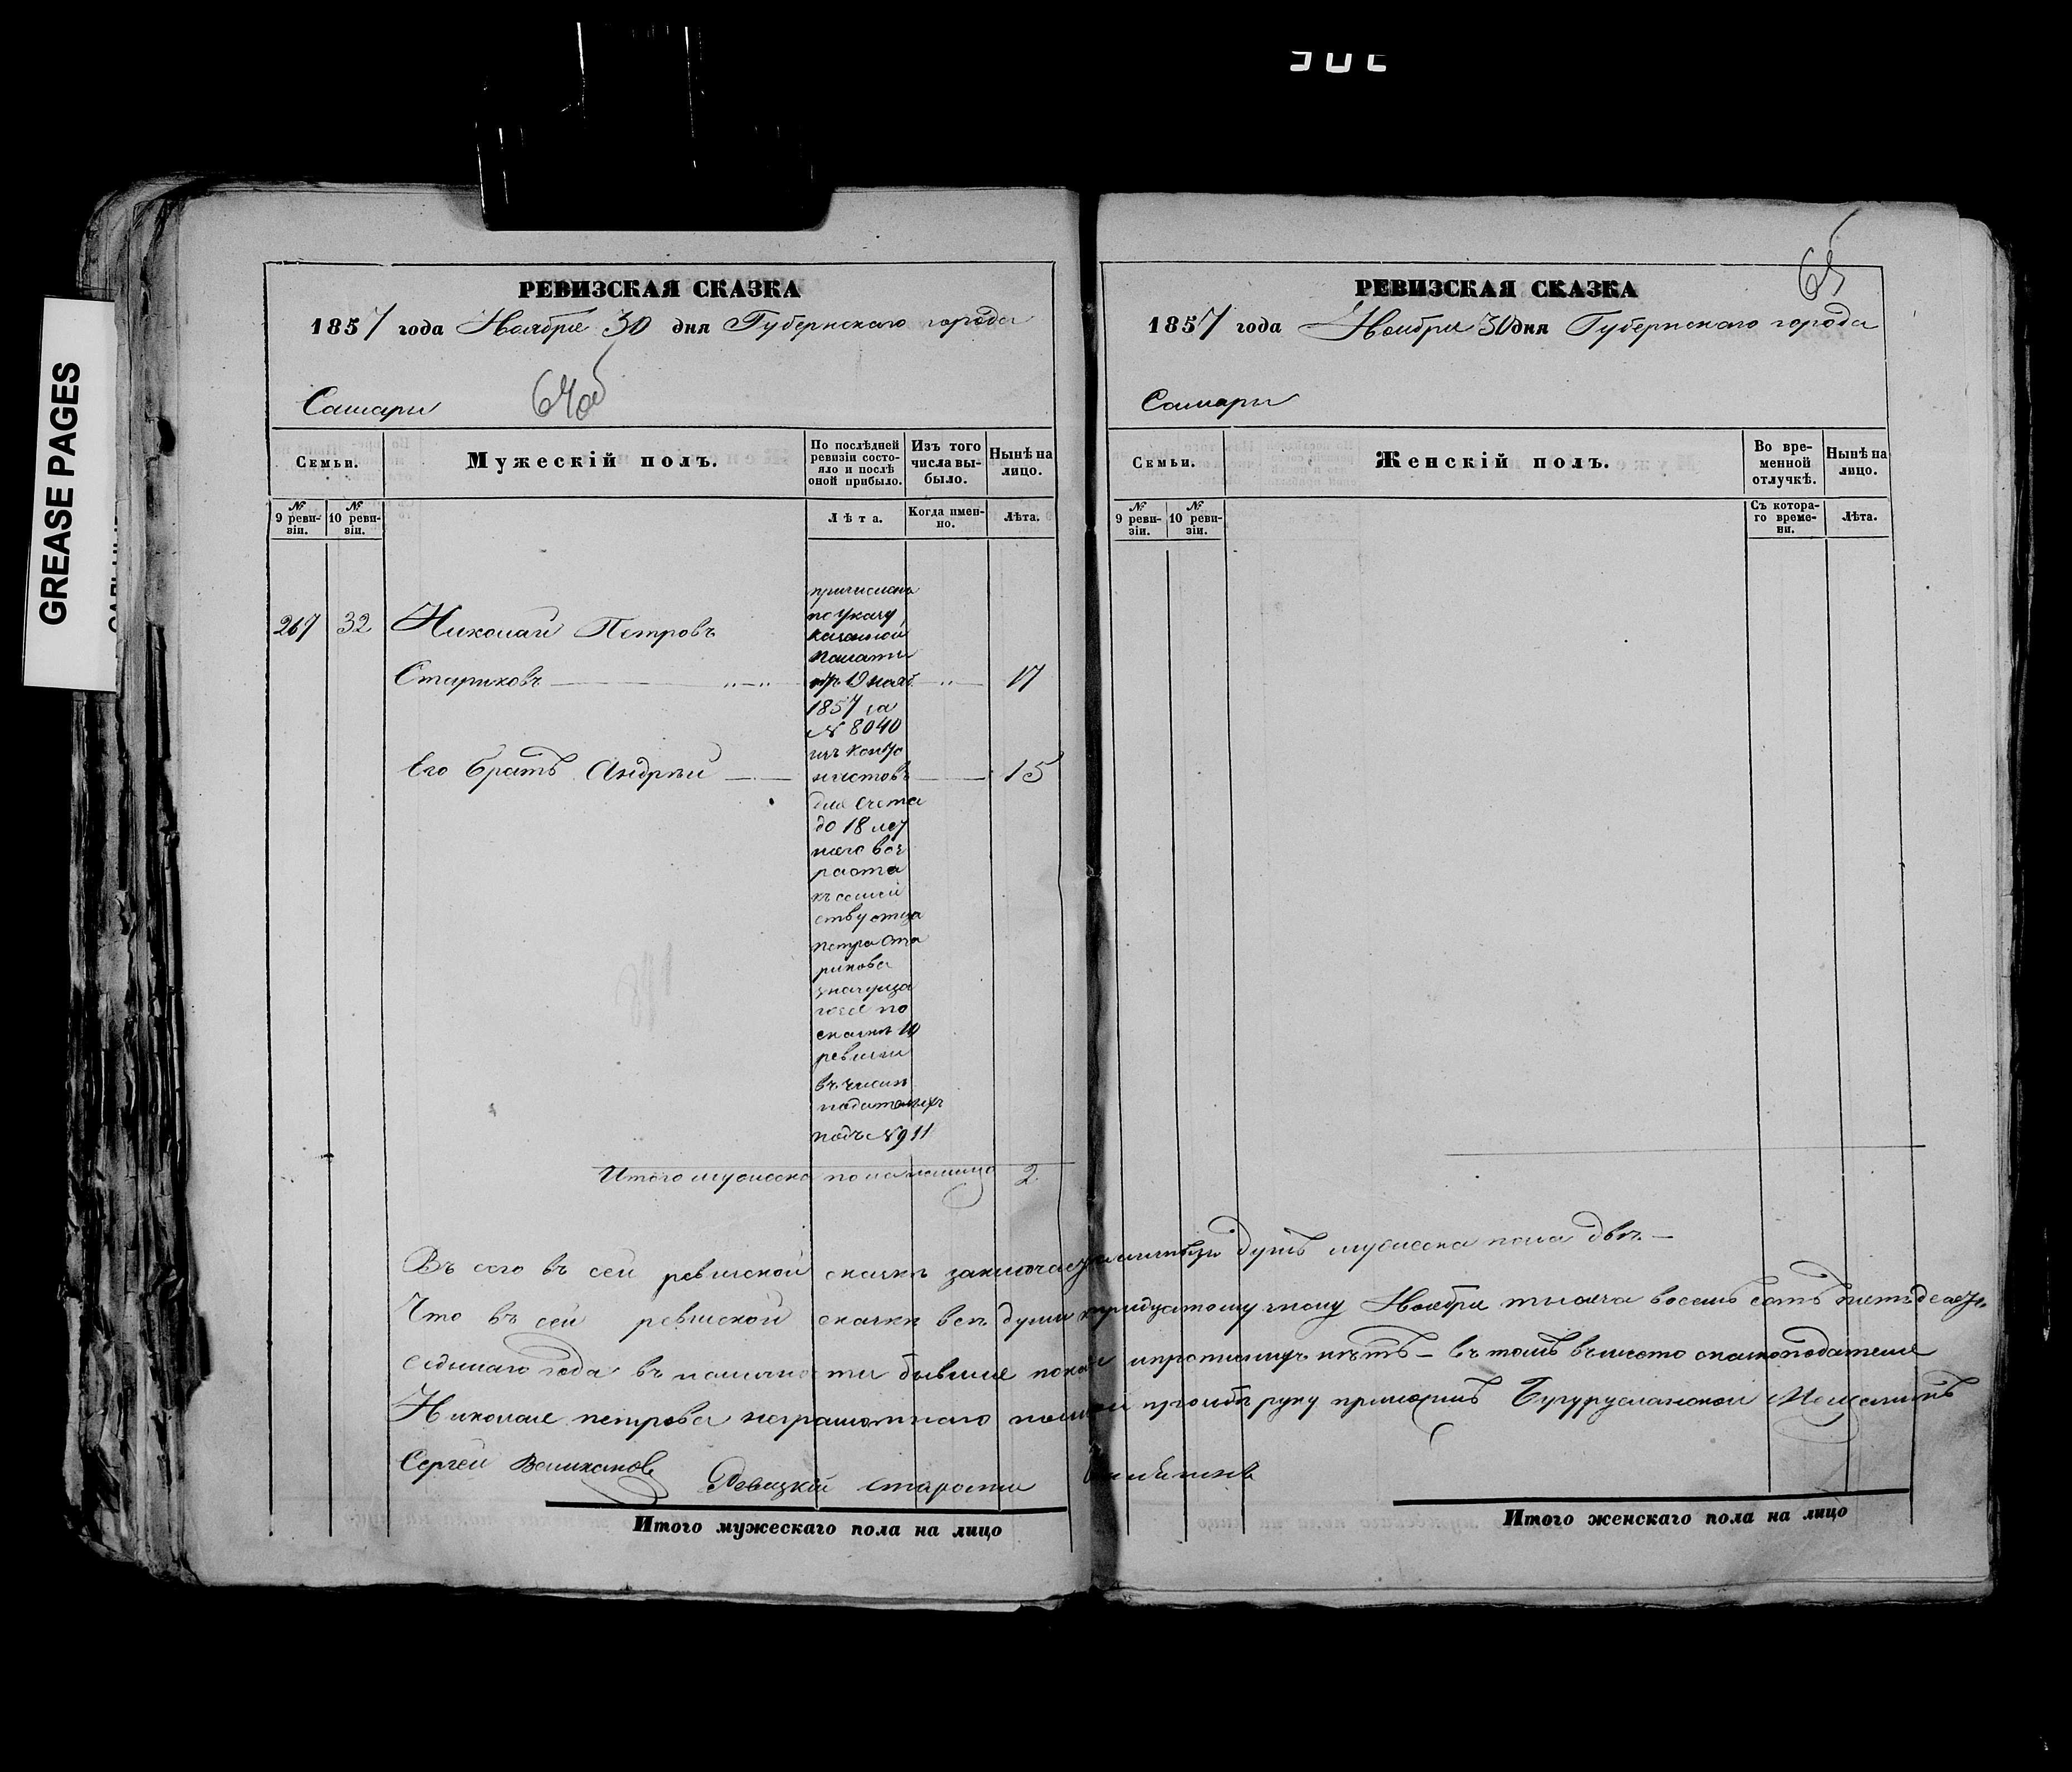 GREASE PAGES
РЕВИЗСКАЯ СКАЗКА
1857 года Ноября 30 дня Губернскаго города
Самары
64об
Семьи.
Мужескій полъ.
По послѣдней ревизіи состояло и послѣ оной прибыло.
Изъ того числа выбыло.
Нынѣ на лицо.
№ 9 ревизіи.
№ 10 ревизіи.
Лѣта.
Когда именно.
Лѣта.
267 32 Николай Петровъ
Стариковъ 17
Его братъ Андрей 15
приписаны
по указу
казенной
палаты
отъ 19 нояб
1857 за
№ 8040
изъ канто
нистовъ
для счета
до 18 лет
няго воз
раста
къ семей
ству отца
петра Ста
рикова
значуща
гося по
сказкѣ 10
ревизіи
въ числѣ
податныхъ
подъ № 911
Итого мужеска пола налицо 2
РЕВИЗСКАЯ СКАЗКА
65
1857 года Ноября 30 дня Губернскаго города
Самары
Семьи.
Женскій полъ.
Во временной отлучкѣ.
Нынѣ на лицо.
№ 9 ревизіи.
№ 10 ревизіи.
Съ котораго времени.
Лѣта.
Въ сей ревиской сказкѣ душъ мужеска пола двѣ
Что въ сей ревиской сказкѣ всѣ души тридцатому числу Ноября тысяча восемь сотъ пятьдесятъ
седьмаго года въ бывшие нѣтъ въ томъ вместо сказкоподателя
Николая петрова неграмотнаго прозьбѣ руку приложилъ Бугурусланской Мещанинъ
Сергей Старосты
Итого мужескаго пола на лицо
Итого женскаго пола на лицо